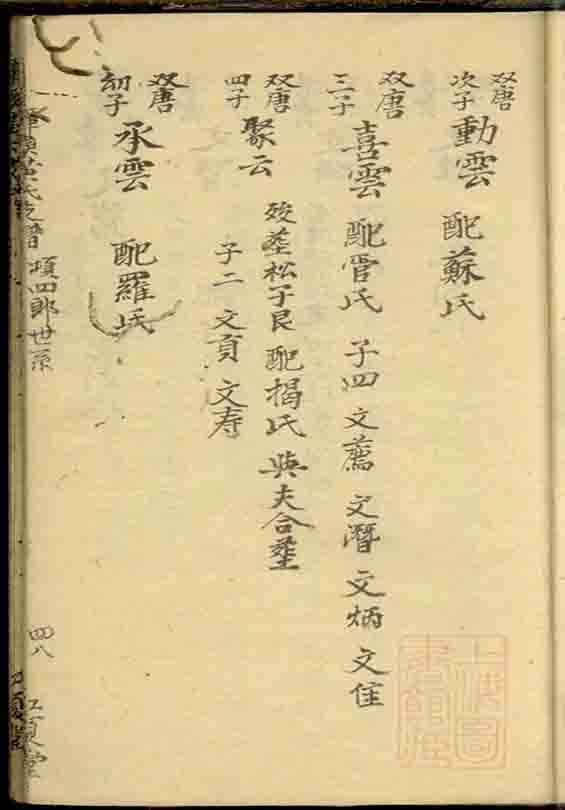 双唐
次子
動雲 配蘇氏
双唐
三子
喜雲 配管氏 子四 文薦 文潛 文炳 文住
双唐
四子
聚云
殁葬松子艮 配揭氏 與夫合葬
子二 文頁 文寿
双唐
幼子
承雲 配羅氏
氏支譜 四郎世系 四八
上海圖書館藏